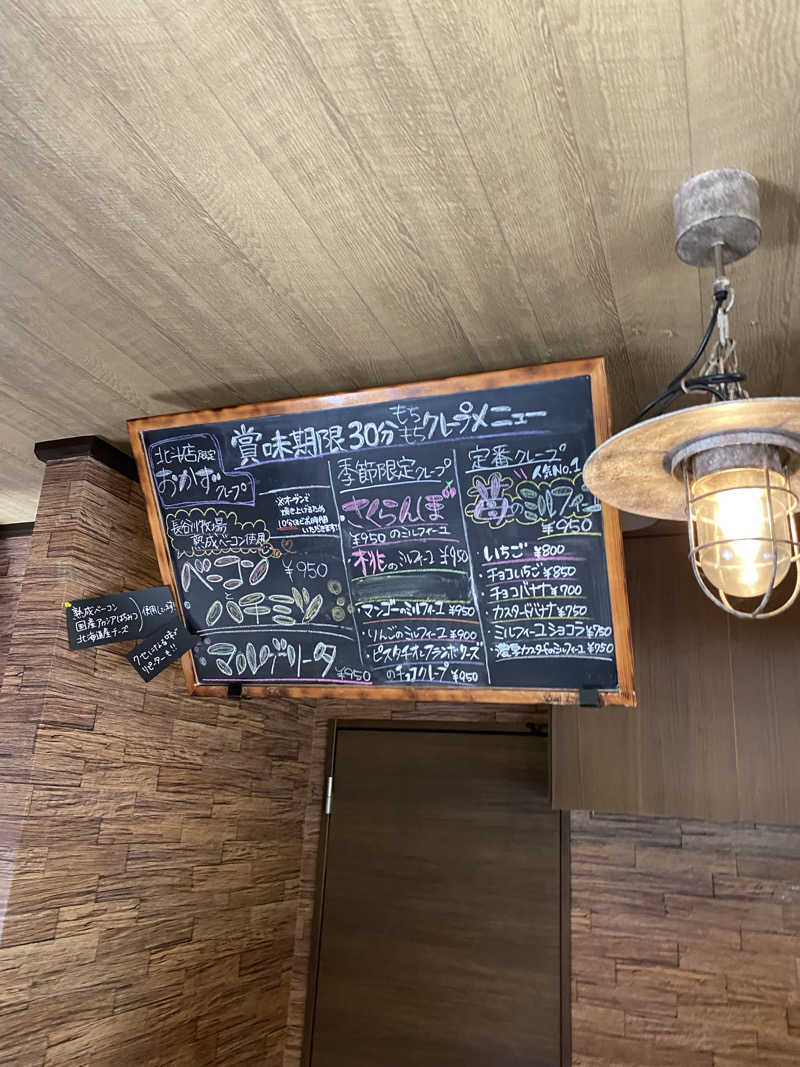 賞味期限30分もちもちクレープメニュー
北斗店限定
おかずクレープ
※オーブンで
焼き上げるため
10分ほどお時間
いただきます!!
長谷川牧場
熟成ベーコン使用
ベーコン ¥950
と
マルゲリータ
¥950
熟成ベーコン
国産アカシアはちみつ
北海道産チーズ
使用しています
クセになる美味しさ
リピーター!!
季節限定クレープ
さくらんぼ
¥950のミルフィーユ
桃のミルフィーユ ¥950
マンゴーのミルフィーユ ¥950
・りんごのミルフィーユ ¥900
・ピスタチオとフランボワーズ
のチョコクレープ ¥950
定番クレープ
人気No.1
苺のミルフィーユ
¥950
・いちご ¥800
・チョコいちご ¥850
・チョコバナナ ¥700
・カスタードバナナ ¥750
・ミルフィーユショコラ ¥750
・濃厚カスタードのミルフィーユ ¥750